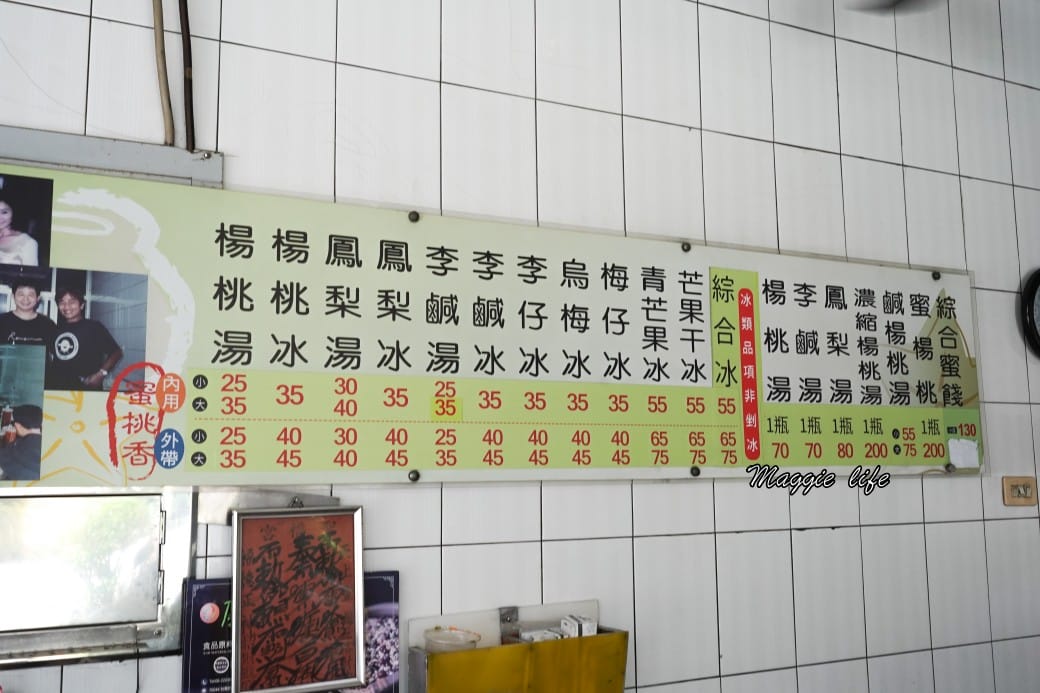 蜜桃香
內用 小 大
外帶 小 大
楊桃湯 25 35 25 35
楊桃冰 35 40 45
鳳梨湯 30 40 30 40
鳳梨冰 35 40 45
李鹹湯 25 35 25 35
李鹹冰 35 40 45
李仔冰 35 40 45
烏梅冰 35 40 45
梅仔冰 35 40 45
青芒果冰 55 65 75
芒果干冰 55 65 75
綜合冰 55 65 75
冰類品項非剉冰
楊桃湯 1瓶 70
李鹹湯 1瓶 70
鳳梨湯 1瓶 80
濃縮楊桃湯 1瓶 200
鹹楊桃湯 小 55 大 75
蜜楊桃 1瓶 200
綜合蜜餞 130
Maggie life
食品原料